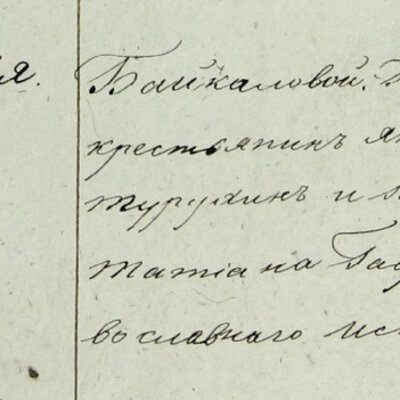 я. Байкаловой.
крестьянинъ
турухинъ и
татіана
вославнаго ис